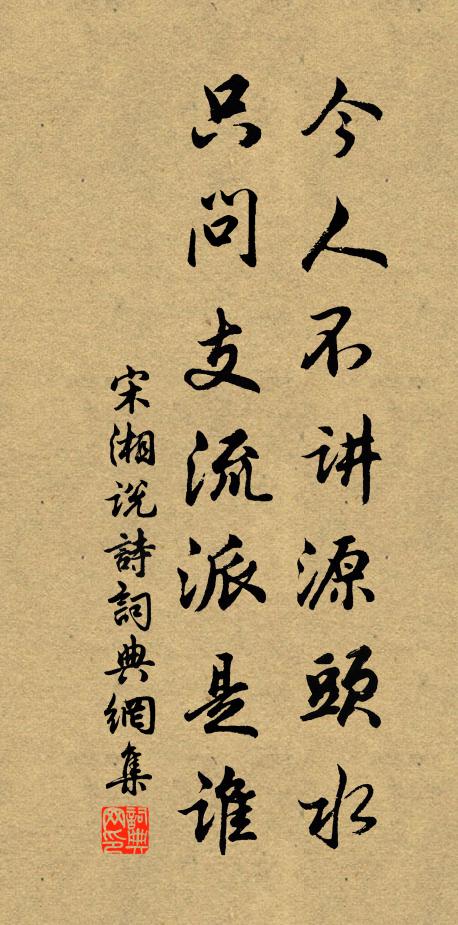 今人不讲源頭水
只问支流派是谁
宋湘说詩詞典網集
詞典网印